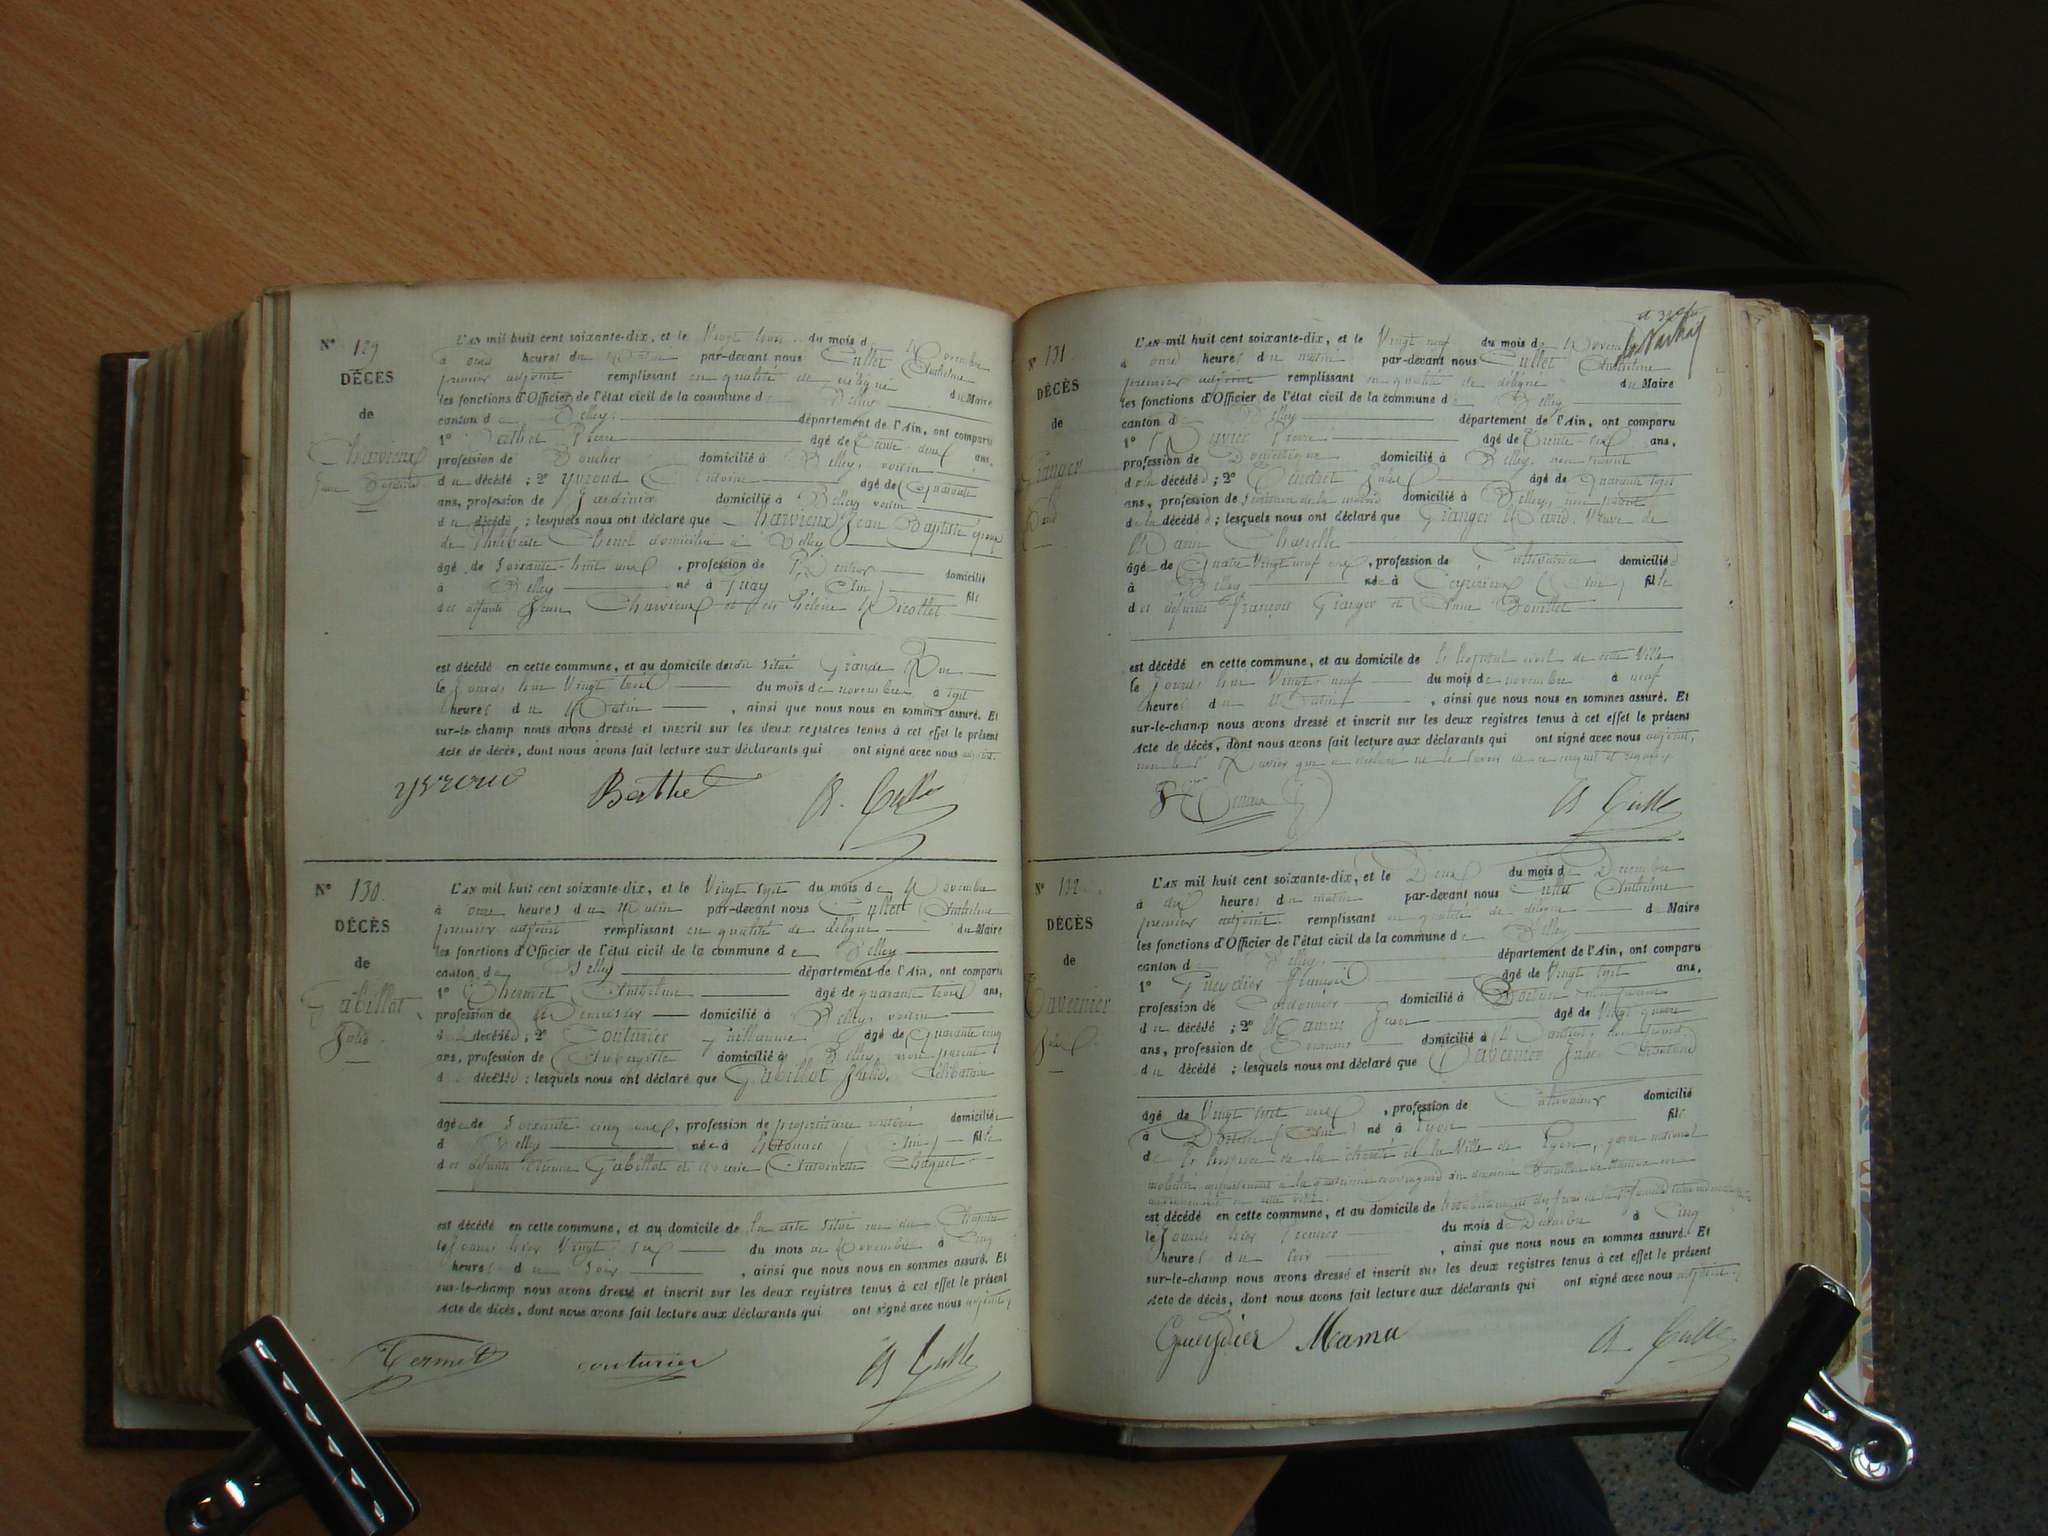 N° 129
DÉCÈS
de
Charvieux
Jean Baptiste
L'AN mil huit cent soixante-dix, et le Vingt trois du mois de Novembre
à onze heures du matin par-devant nous Cullet Anthelme
premier adjoint remplissant en qualité de délégué du Maire
les fonctions d'Officier de l'état civil de la commune de Belley
canton de Belley département de l'Ain, ont comparu
1° Berthet Pierre âgé de Trente deux ans,
profession de Boucher domicilié à Belley, voisin
du décédé ; 2° Yvroud Antoine âgé de Quarante
ans, profession de Jardinier domicilié à Belley voisin
du décédé ; lesquels nous ont déclaré que Charvieux Jean Baptiste époux
de domicilié à Belley
âgé de Soixante huit ans, profession de Rentier domicilié
à Belley né à (Ain) fils
des défunts Jean Charvieux et de Hélène Nicollet
est décédé en cette commune, et au domicile de situé Grande Rue
le jour hier Vingt trois du mois de novembre à sept
heures du Matin, ainsi que nous nous en sommes assuré. Et
sur-le-champ nous avons dressé et inscrit sur les deux registres tenus à cet effet le présent
Acte de décès, dont nous avons fait lecture aux déclarants qui ont signé avec nous adjoint.
yvroud Berthet A. Cullet
N° 130.
DÉCÈS
de
Gabillot
Julie.
L'AN mil huit cent soixante-dix, et le Vingt sept du mois de Novembre
à onze heures du Matin par-devant nous Cullet Anthelme
premier adjoint remplissant en qualité de délégué du Maire
les fonctions d'Officier de l'état civil de la commune de Belley
canton de Belley département de l'Ain, ont comparu
1° Thermet Anthelme âgé de quarante trois ans,
profession de Menuisier domicilié à Belley, voisin
de la décédée ; 2° Couturier Guillaume âgé de Quarante cinq
ans, profession de Aubergiste domicilié à Belley non parent
de la décédée ; lesquels nous ont déclaré que Gabillot Julie. Célibataire
âgée de Soixante cinq ans, profession de propriétaire rentière domiciliée
à Belley née à Hotonnes (Ain) fille
des défunts Etienne Gabillot et Marie Antoinette Chaquet
est décédé en cette commune, et au domicile de la dite situé rue du Chapitre
le jour hier Vingt six du mois de Novembre à Cinq
heures du Soir, ainsi que nous nous en sommes assuré. Et
sur-le-champ nous avons dressé et inscrit sur les deux registres tenus à cet effet le présent
Acte de décès, dont nous avons fait lecture aux déclarants qui ont signé avec nous adjoint,
Termet couturier A Cullet
N° 131
DÉCÈS
de
Granger
Marie
L'AN mil huit cent soixante-dix, et le Vingt neuf du mois de Novembre
à onze heures du matin par-devant nous Cullet Anthelme
premier adjoint remplissant en qualité de délégué du Maire
les fonctions d'Officier de l'état civil de la commune de Belley
canton de Belley département de l'Ain, ont comparu
1° Pierre âgé de Trente six ans,
profession de Domestique domicilié à Belley, non parent
de la décédée ; 2° âgé de quarante sept
ans, profession de Secrétaire de la mairie domicilié à Belley, non parent
de la décédée ; lesquels nous ont déclaré que Granger Marie. Veuve de
Chapelle
âgée de Quatre Vingt neuf ans, profession de Cultivatrice domiciliée
à Belley née à Ceyzérieux (Ain) fille
des défunts François Granger et Anne Bouillet
est décédé en cette commune, et au domicile de l'hospice civil de cette Ville
le jour hier Vingt neuf du mois de novembre à neuf
heures du Matin, ainsi que nous nous en sommes assuré. Et
sur-le-champ nous avons dressé et inscrit sur les deux registres tenus à cet effet le présent
Acte de décès, dont nous avons fait lecture aux déclarants qui ont signé avec nous adjoint,
non le Sr qui a déclaré ne le savoir de ce enquis et requis.
A Cullet
N° 132
DÉCÈS
de
Tavernier
Jules.
L'AN mil huit cent soixante-dix, et le Deux du mois de Décembre
à dix heures du matin par-devant nous Cullet Anthelme
premier adjoint remplissant en qualité de délégué du Maire
les fonctions d'Officier de l'état civil de la commune de Belley
canton de Belley département de l'Ain, ont comparu
1° Gueydier François âgé de Vingt sept ans,
profession de Cordonnier domicilié à non parent
du décédé ; 2° Jean âgé de Vingt quatre
ans, profession de domicilié à non parent
du décédé ; lesquels nous ont déclaré que Tavernier Jules
âgé de Vingt sept ans, profession de Cultivateur domicilié
à (Ain) né à Lyon fils
de l'hospice de la charité de la Ville de Lyon, garde national
mobile, appartenant à la compagnie du Bataillon de
en cette ville.
est décédé en cette commune, et au domicile de
le jour hier Premier du mois de Décembre à Cinq
heures du soir, ainsi que nous nous en sommes assuré. Et
sur-le-champ nous avons dressé et inscrit sur les deux registres tenus à cet effet le présent
Acte de décès, dont nous avons fait lecture aux déclarants qui ont signé avec nous adjoint.
Gueydier Mama A. Cullet